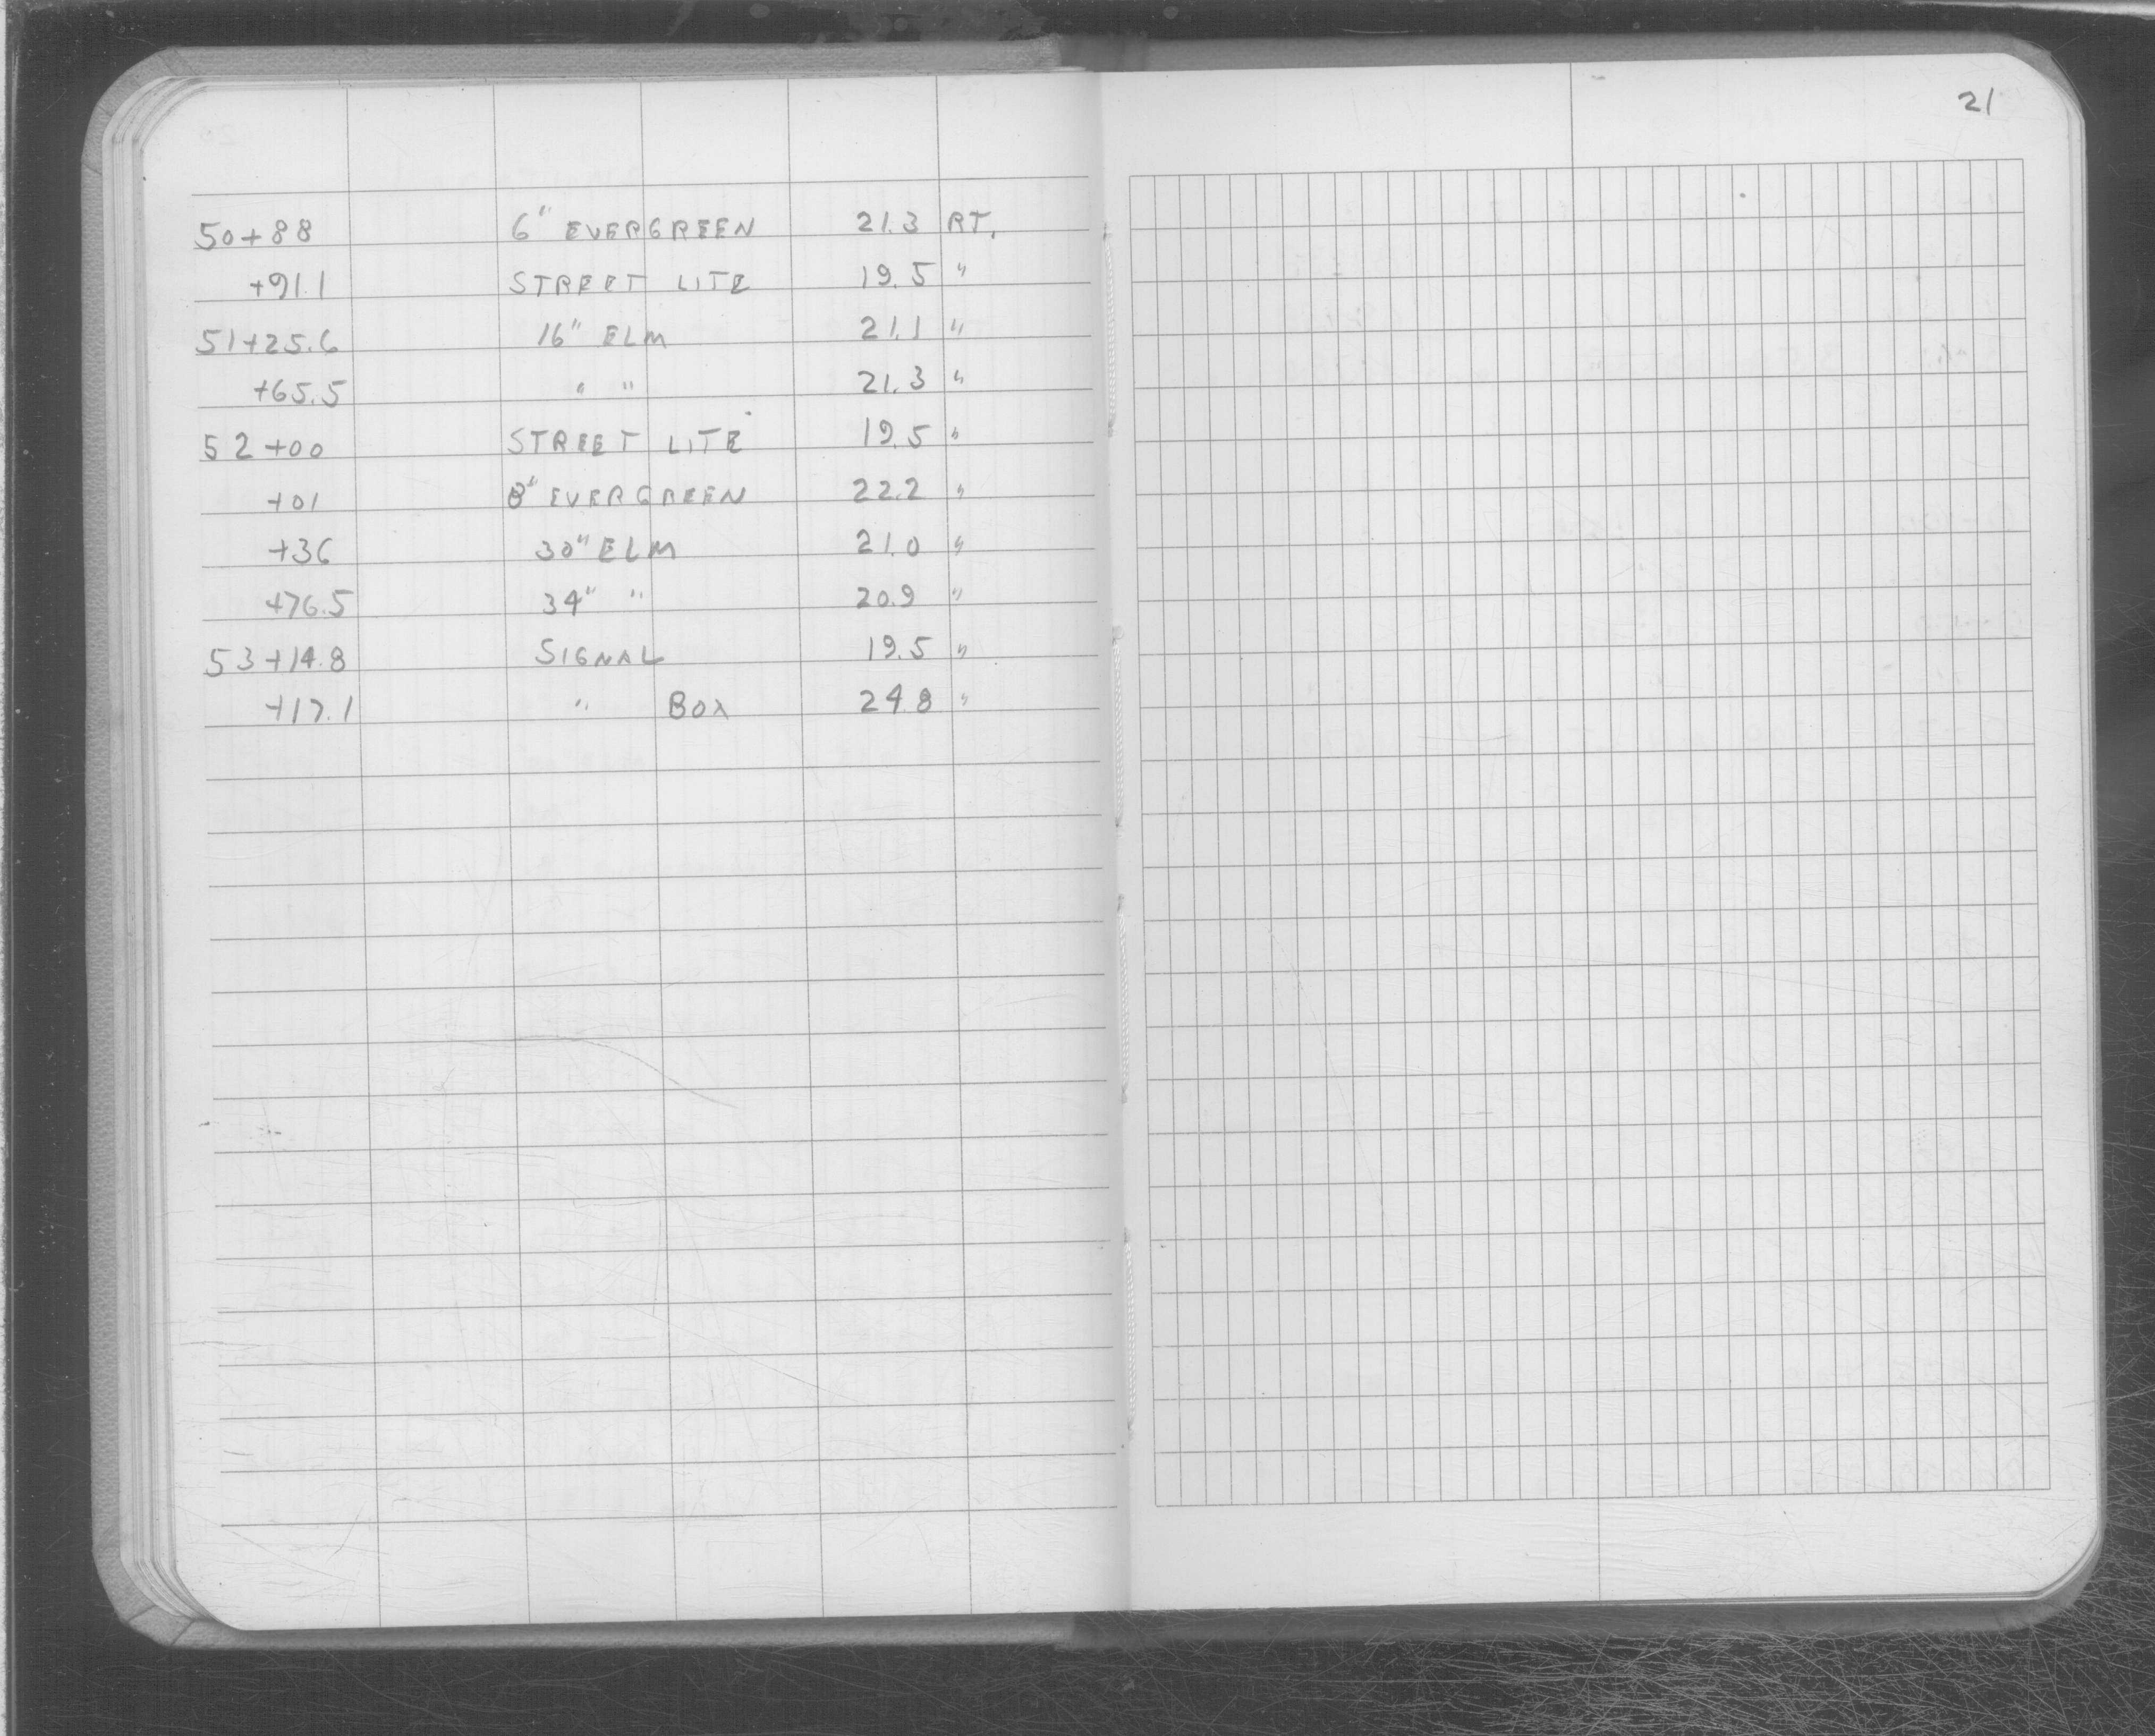 21
50+88 6" EVERGREEN 21.3 RT.
+91.1 STREET LITE 19.5 "
51+25.6 16" ELM 21.1 "
+65.5 " " 21.3 "
52+00 STREET LITE 19.5 "
+01 8" EVERGREEN 22.2 "
+36 30" ELM 21.0 "
+76.5 34" " 20.9 "
53+14.8 SIGNAL 19.5 "
+17.1 " BOX 24.8 "